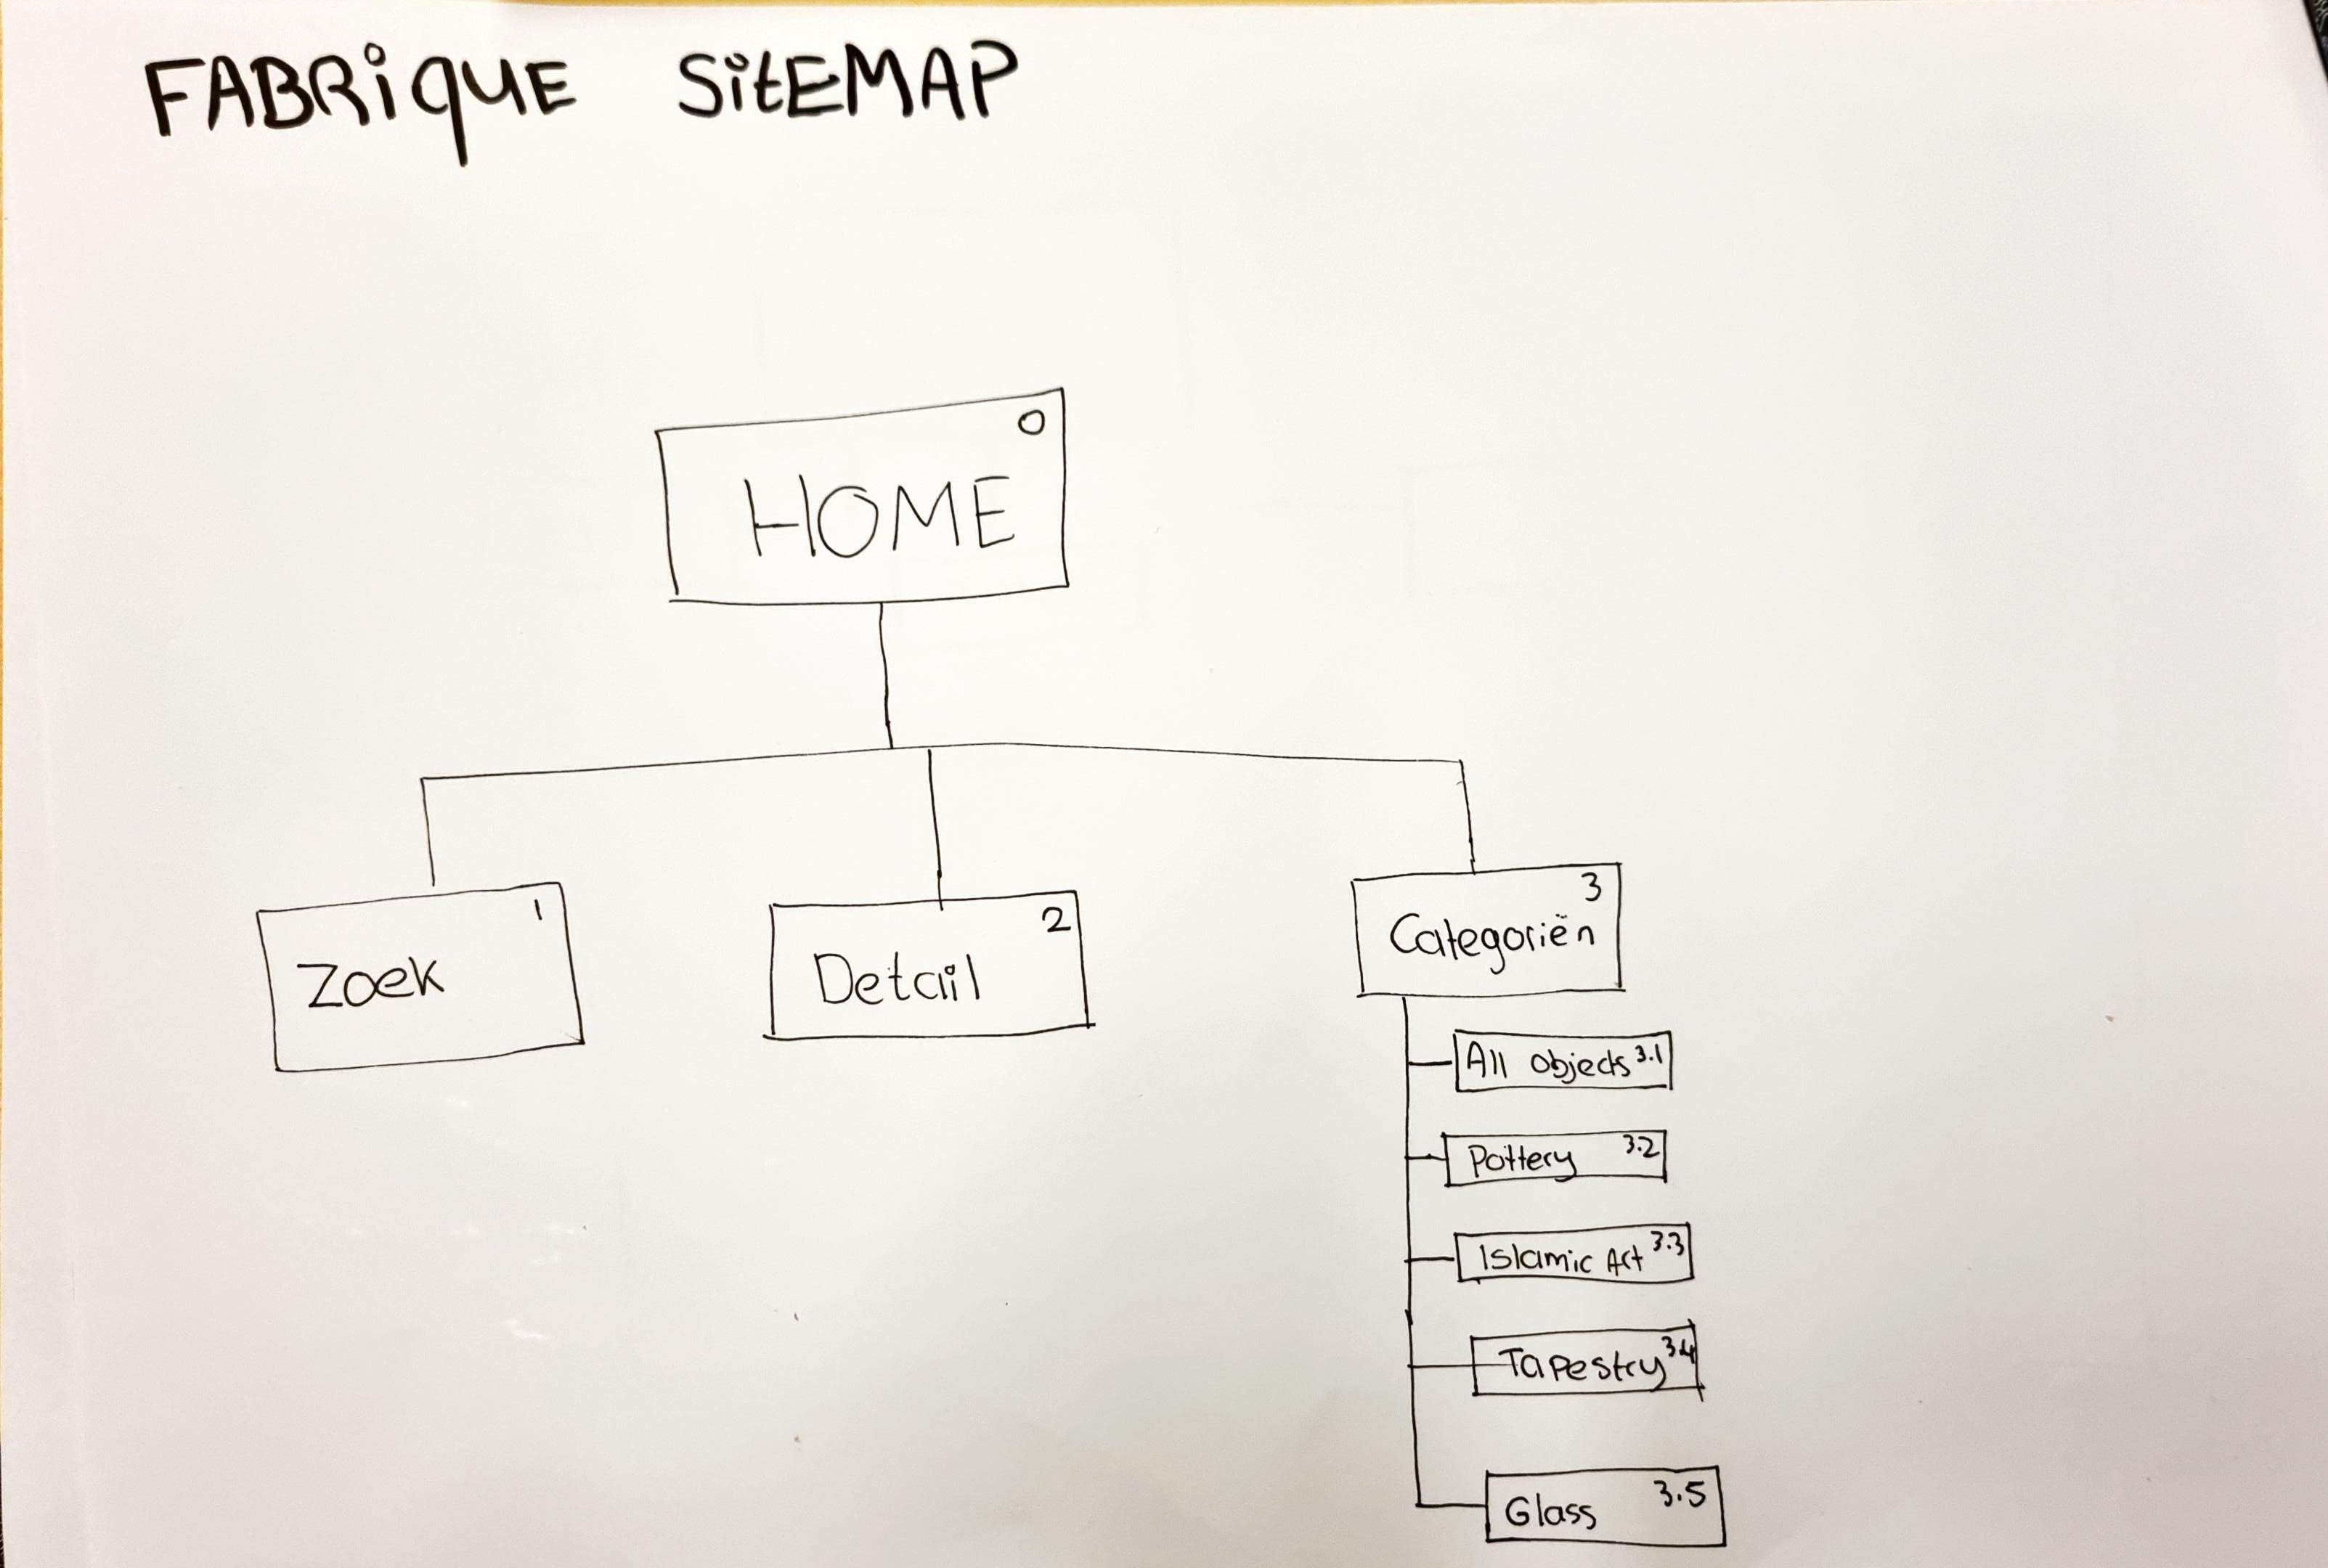 FABRiQUE SitEMAP
0
HOME
1
Zoek
2
Detail
3
Categoriën
All objects 3.1
Pottery 3.2
Islamic Art 3.3
Tapestry 3.4
Glass 3.5